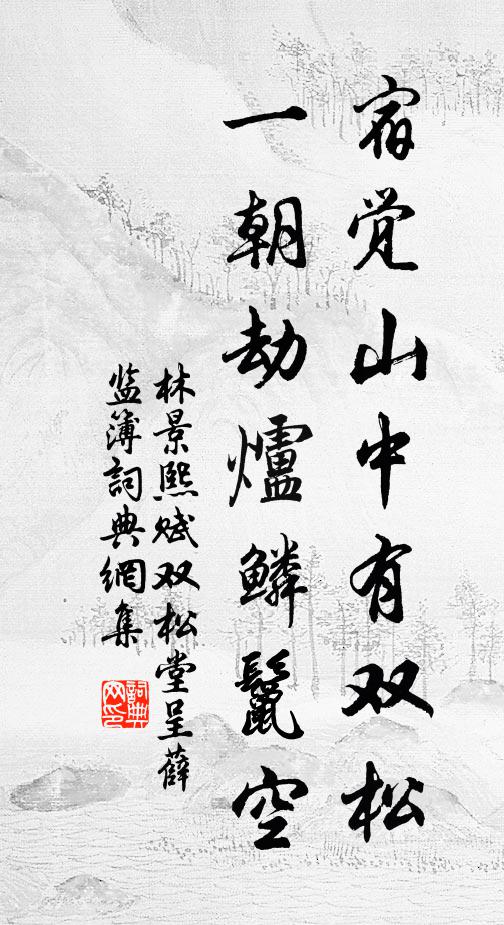 宿觉山中有双松
一朝劫爐鱗鬣空
林景熙赋双松堂呈薛
监簿詞典網集
詞典
网印